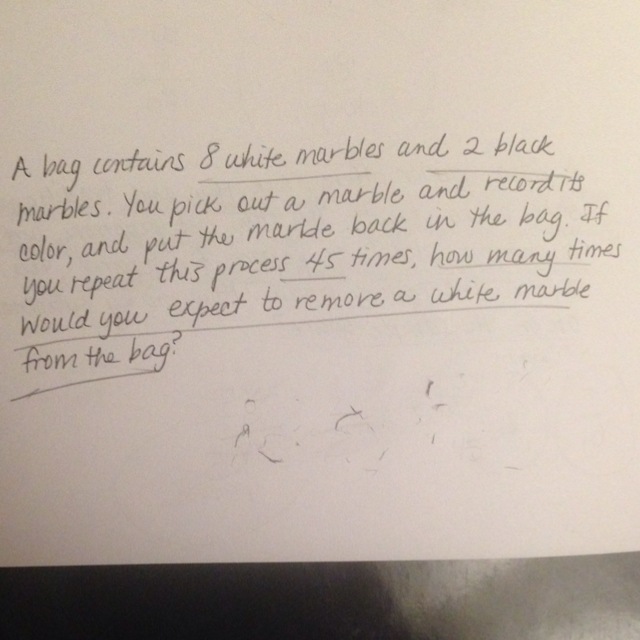 A bag contains 8 white marbles and 2 black
marbles. You pick out a marble and record its
color, and put the marble back in the bag. If
you repeat this process 45 times, how many times
would you expect to remove a white marble
from the bag?